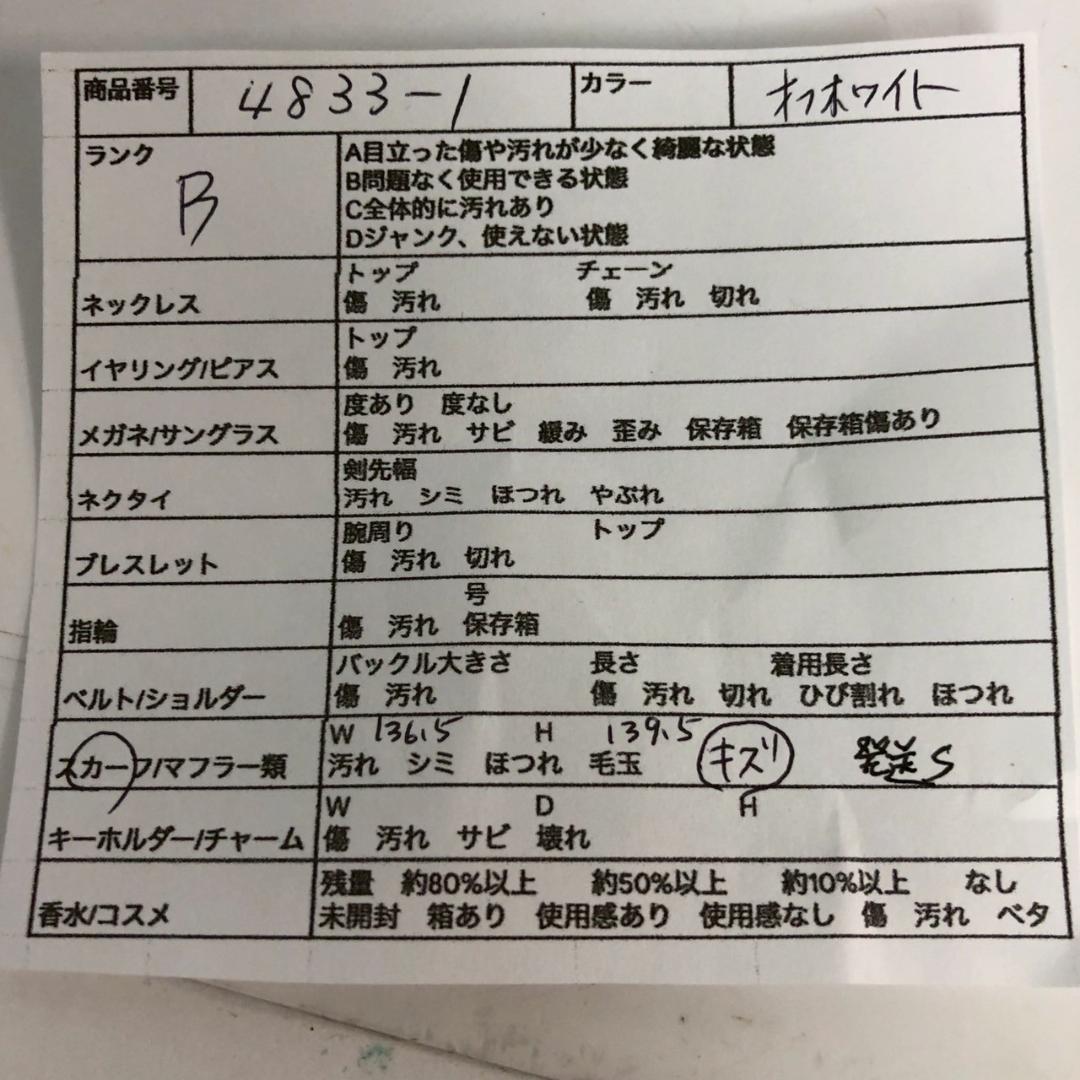 商品番号 4833-1 カラー オフホワイト
ランク B
A目立った傷や汚れが少なく綺麗な状態
B問題なく使用できる状態
C全体的に汚れあり
Dジャンク、使えない状態
ネックレス
トップ チェーン
傷 汚れ 傷 汚れ 切れ
イヤリング/ピアス
トップ
傷 汚れ
メガネ/サングラス
度あり 度なし
傷 汚れ サビ 緩み 歪み 保存箱 保存箱傷あり
ネクタイ
剣先幅
汚れ シミ ほつれ やぶれ
ブレスレット
腕周り トップ
傷 汚れ 切れ
指輪
号
傷 汚れ 保存箱
ベルト/ショルダー
バックル大きさ 長さ 着用長さ
傷 汚れ 傷 汚れ 切れ ひび割れ ほつれ
スカーフ/マフラー類
W 136.5 H 139.5
汚れ シミ ほつれ 毛玉 キズリ 発送S
キーホルダー/チャーム
W D H
傷 汚れ サビ 壊れ
香水/コスメ
残量 約80%以上 約50%以上 約10%以上 なし
未開封 箱あり 使用感あり 使用感なし 傷 汚れ ベタ